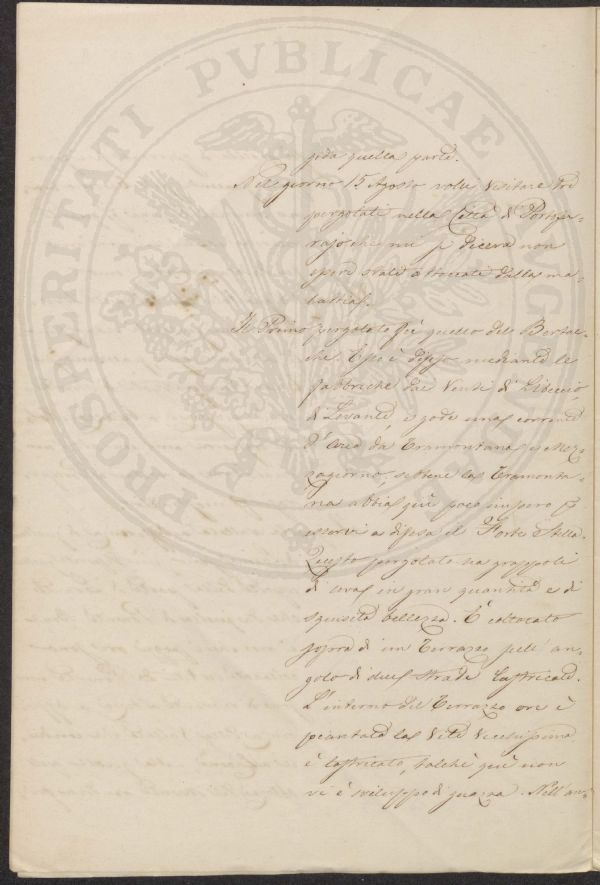 PROSPERITATI PVBLICAE AVG
quella parte.
Nel giorno 15 Agosto volli visitare tre
pergolati nella Città di Portofer-
rajo che mi si diceva non
essere state attaccate dalla ma-
lattia.
Il Primo pergolato fù quello del
Esso è difeso mediante le
fabbriche dai Venti di Libeccio,
di Levante, e gode una corrente
d'aria da Tramontana, e Mez-
zogiorno, sebbene la Tramonta-
na abbia quì poco impero p
esservi a difesa il Forte Stella.
Questo pergolato ha grappoli
di uva in gran quantità e di
squisita bellezza. È collocato
sopra di un Terrazzo nell' an-
golo di due strade lastricate.
L'interno del Terrazzo ove è
piantata la Vite
è lastricato, talchè quì non
vi è sviluppo di Nell' an-